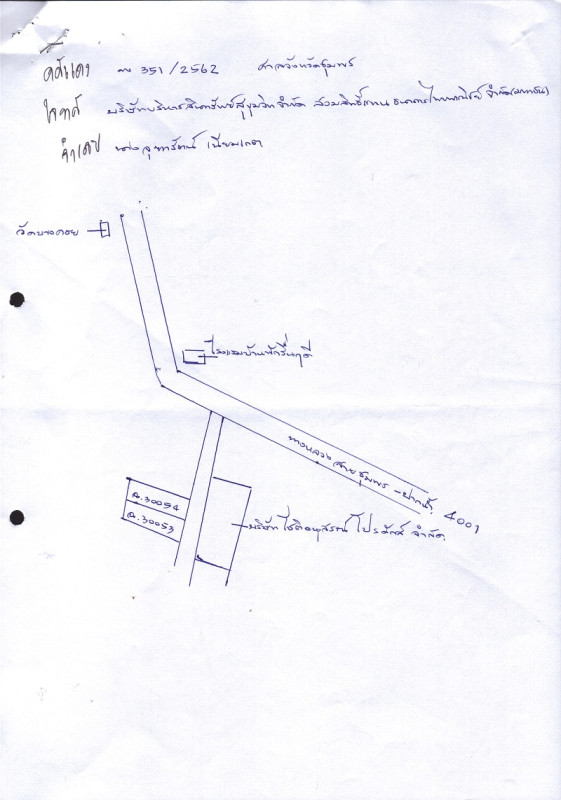 คดีแดง ผบ 351/2562 ศาลจังหวัดชุมพร
โจทก์ บริษัทบริหารสินทรัพย์สุขุมวิท จำกัด สวมสิทธิ์แทน ธนาคารไทยพาณิชย์ จำกัด(มหาชน)
จำเลย นางสุฑารัตน์
วัดบางคอย
โรงแรมบ้านพักชื่นฤดี
ทางหลวง สายชุมพร - ปากน้ำ 4001
ฉ.30054
ฉ.30053
บริษัท โชติอนุสรณ์ โปรดักส์ จำกัด